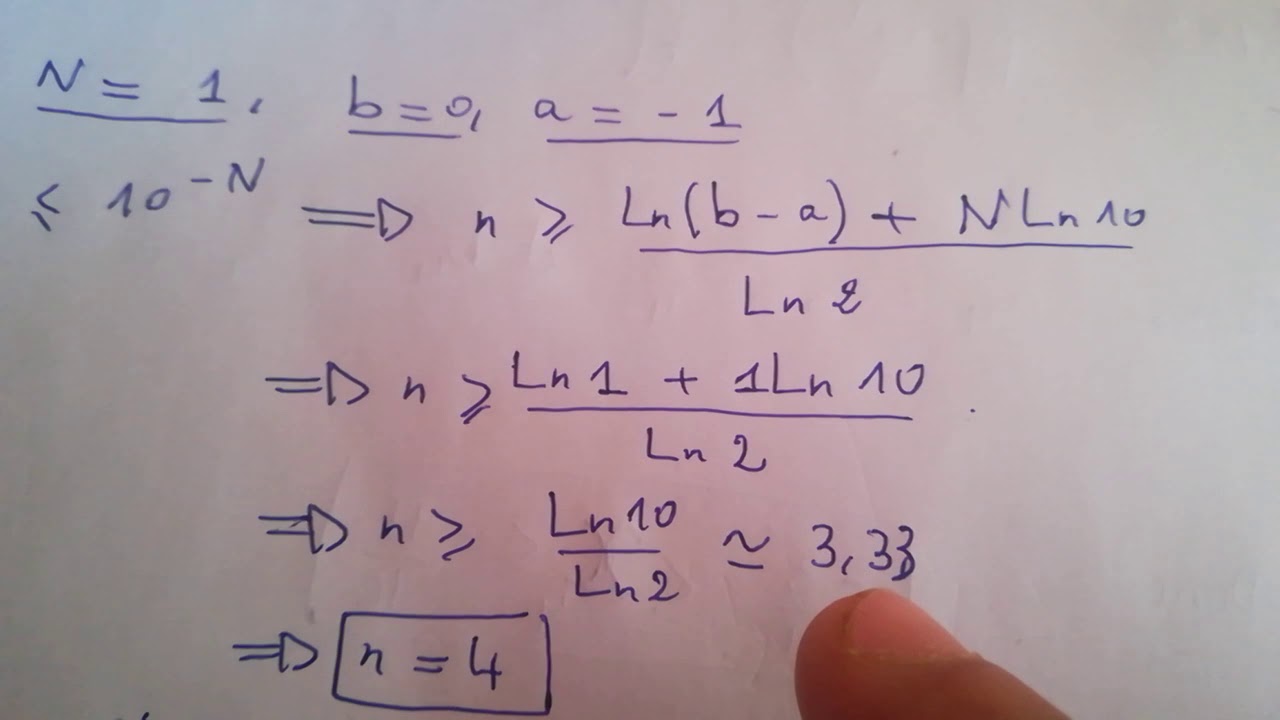 N = 1, b = 0, a = - 1
≤ 10^-N ⟹ n ≥ (Ln(b - a) + N Ln 10) / Ln 2
⟹ n ≥ (Ln 1 + 1 Ln 10) / Ln 2
⟹ n ≥ Ln 10 / Ln 2 ≃ 3,33
⟹ n = 4